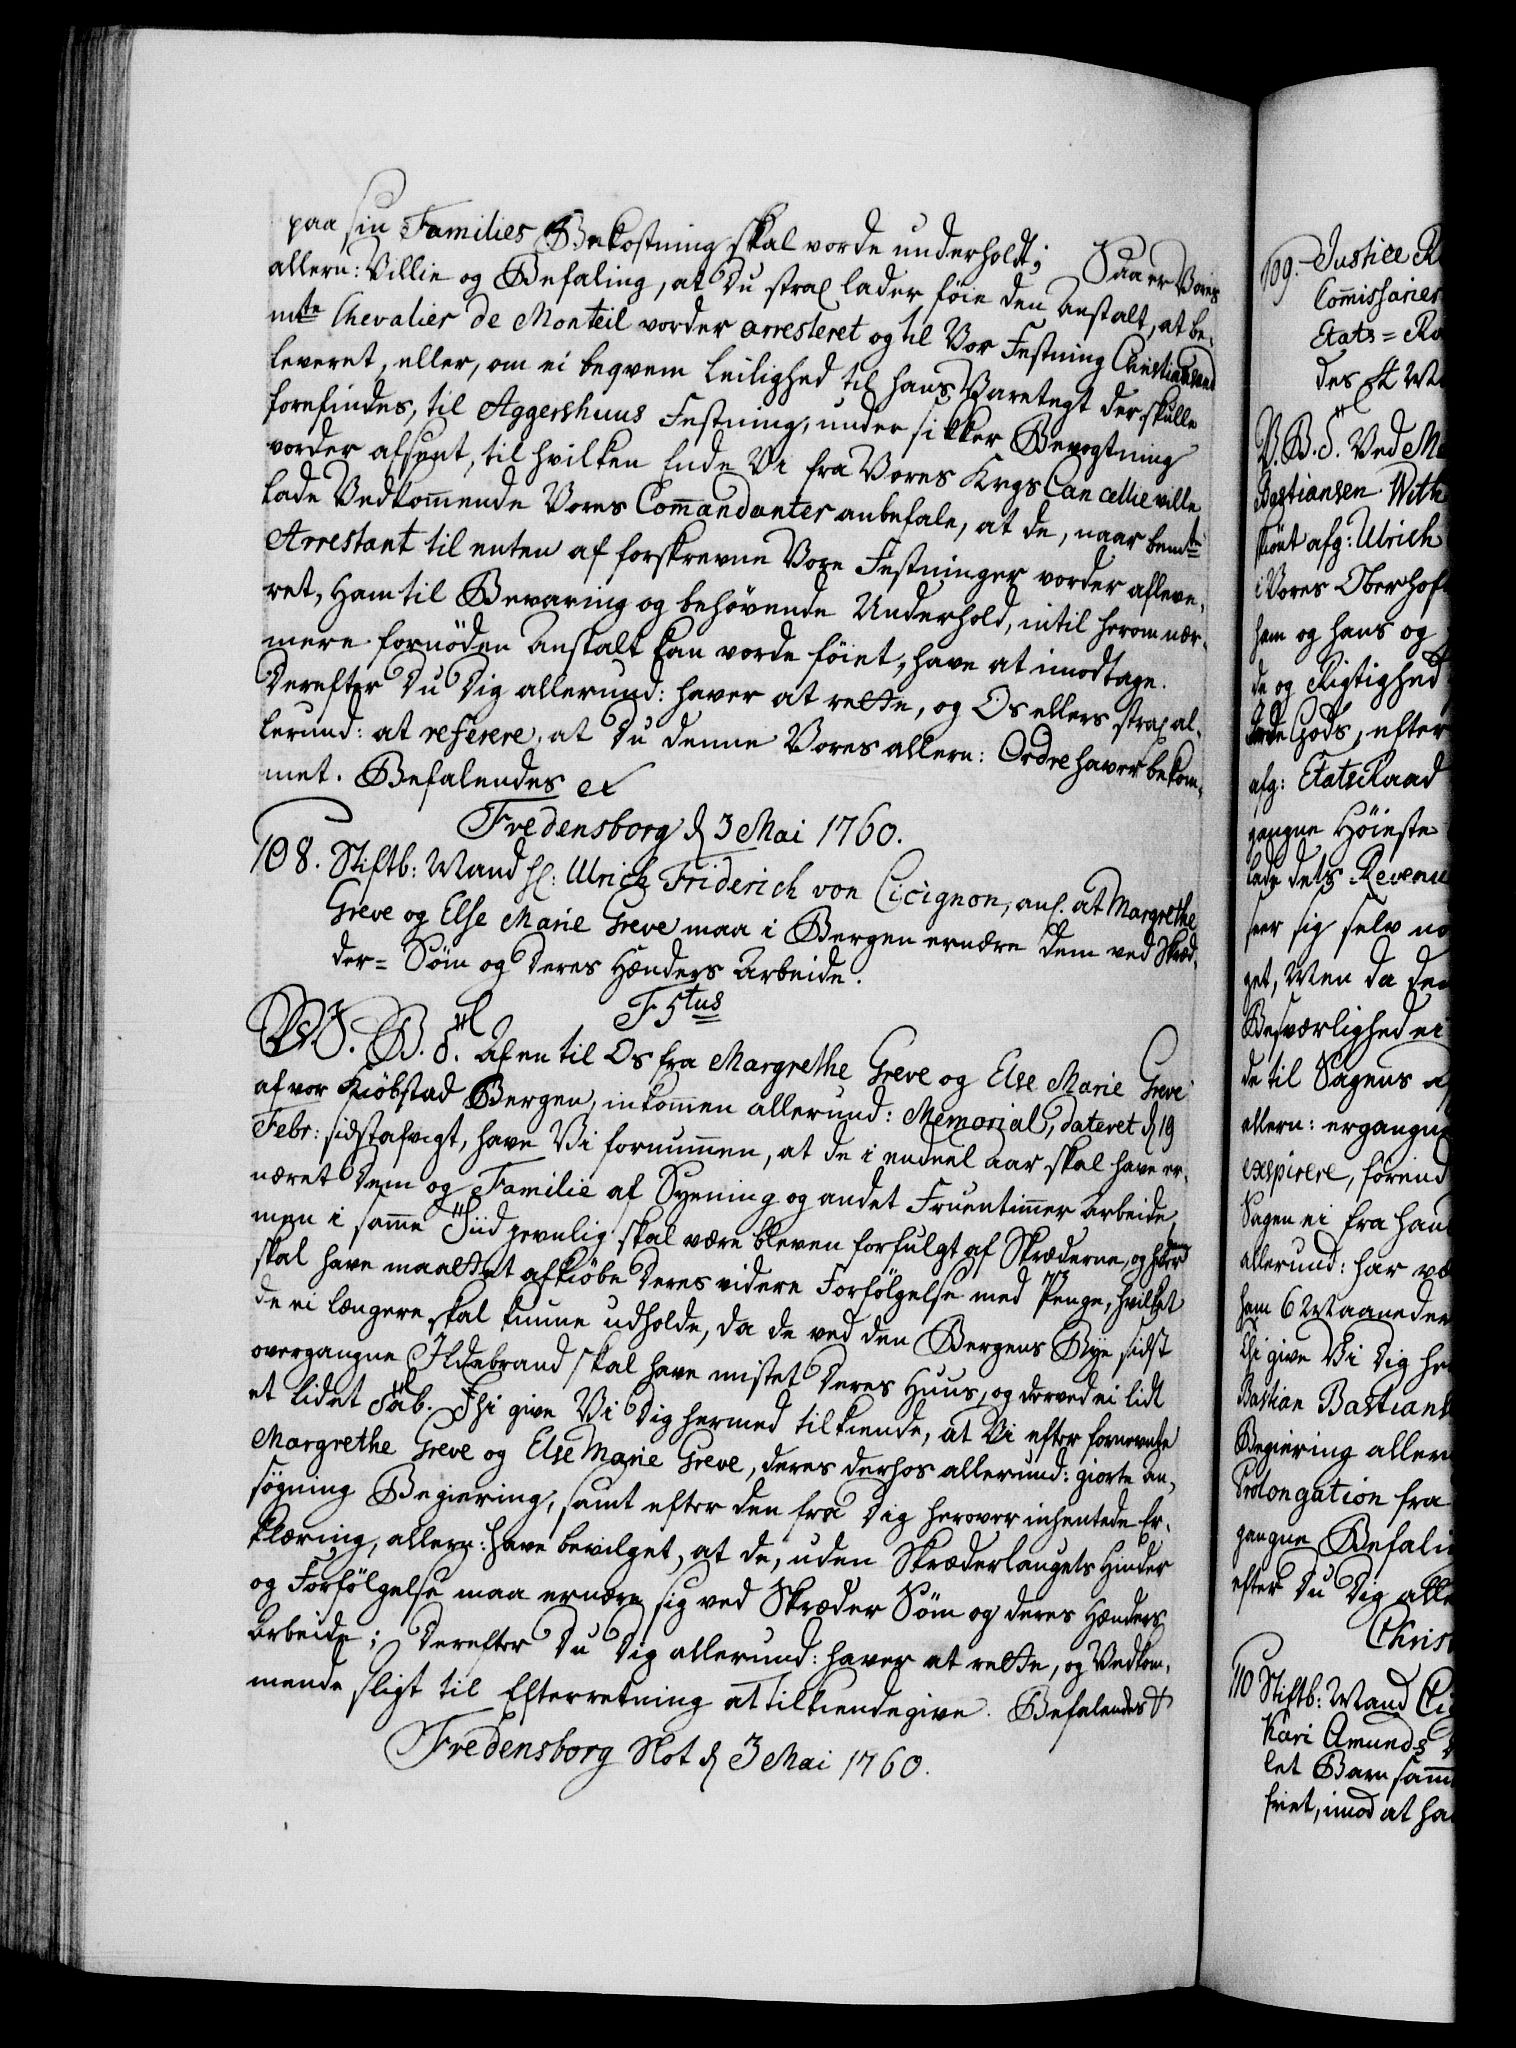 paa sin Families Bekostning skal vorde underholdt; Saa er Vores
allern: Villie og Befaling, at Du strax lader föie den Anstalt, at be-
mte Chevalier de Monteil vorder arresteret og til Vor Festning Christiansand
leveret, eller, om ei beqvem Leilighed til hans Varetegt der skulle
forefindes, til Aggershuus Festning, under sikker Bevogtning
vorder afsent, til hvilken Ende Vi fra Vores Krgs Cancellie ville
lade Vedkommende Vores Commandanter anbefale, at de, naar bemte
Arrestant til enten af forskrevne Vore Festninger vorder afleve-
ret, Ham til Bevaring og behövende Underhold, intil herom nær-
mere fornöden Anstalt kan vorde föiet, have at imodtage.
Derefter Du Dig allerund: haver at rette, og Os ellers strax al-
lerund: at referere, at Du denne Vores allern: Ordre haver bekom-
met. Befalendes &
Fredensborg d 3 Mai 1760.
108. Stiftb: Mand Hl: Ulrich Friderich von Cicignon, anl. at Margrethe
Greve og Else Marie Greve maa i Bergen ernære Dem ved Skræd-
der= Söm og Deres Hænders Arbeide.
F 5tus
V. G. B. T. Af en til Os fra Margrethe Greve og Else Marie Greve
af vor Kiöbstad Bergen, inkommen allerund: Memorial, dateret d 19
Febr: sidstafvigt, have Vi fornummen, at de i endeel Aar skal have er-
næret Dem og Familie af Syening og andet Fruentimmer Arbeide,
men i samme Tiid jevnlig skal være bleven forfulgt af Skræderne, og
skal have maattet afkiöbe Deres videre Forfölgelse med Penge, hvilket
de ei længere skal kunne udholde, da de ved den Bergens Bye sidst
overgangne Ildebrand skal have mistet Deres Huus, og derved ei lidt
et lidet Tab. Thi give Vi Dig hermed tilkiende, at Vi efter fornevnte
Margrethe Greve og Else Marie Greve, deres derhos allerund: giorte An-
sögning Begiering, samt efter den fra Dig herover inhentede Er-
klæring, allern: have bevilget, at de, uden Skræderlaugets Hinder
og Forfölgelse maa ernære sig ved Skræder Söm og deres Hænders
Arbeide; Derefter Du Dig allerund: haver at rette, og Vedkom-
mende sligt til Efterretning at tilkiendegive. Befalendes &
Fredensborg Slot d 3 Mai 1760.
109. Justice R
Commissarier
Etats= Ra
des
V. G. B. T. Ved Me
Bastiansen With
skiönt afg: Ulrich
i Vores Oberhof
ham og hans og
de og Rigtighed
Gods, efter
afg: EtatsRaad
gangne Höieste
lade dets Revenue
seer sig selv no
get, Men da den
Besværlighed ei
de til Sagens
allern: ergangne
exspirere, förend
Sagen ei fra han
allerund: har væ
ham 6 Maaneder
Thi give Vi Dig her
Bastian Bastians
Begiering allern
Prolongation fra
gangne Befalin
efter Du Dig alle
Christ
110 Stiftb: Mand Ci
Kari Amunds
let Barn samm
friet, imod at ha